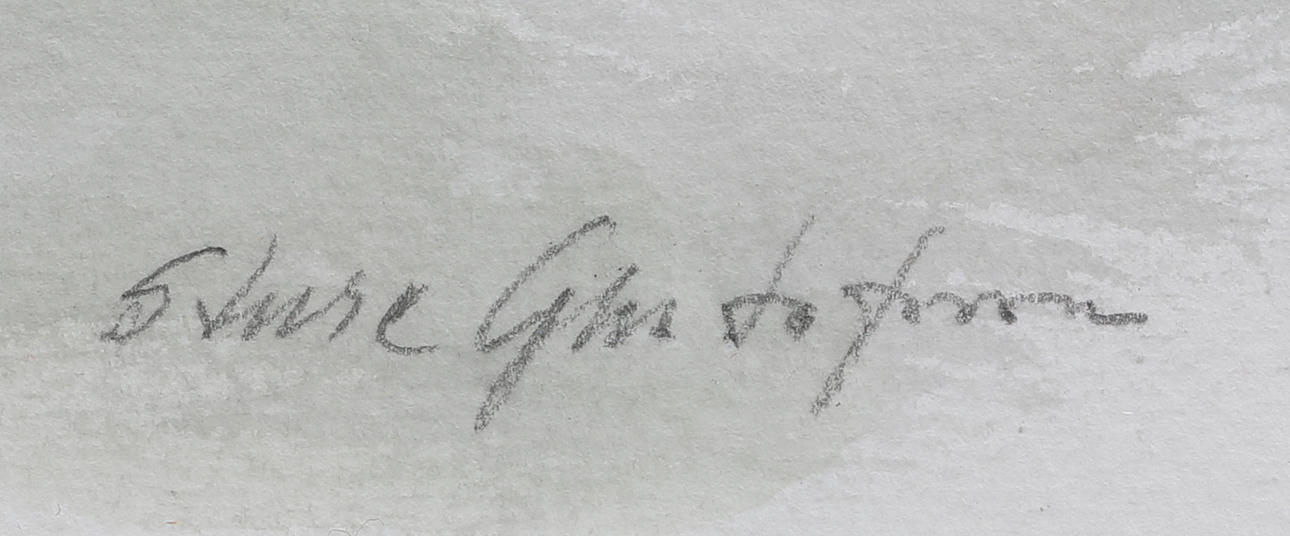 Sture Gustafsson